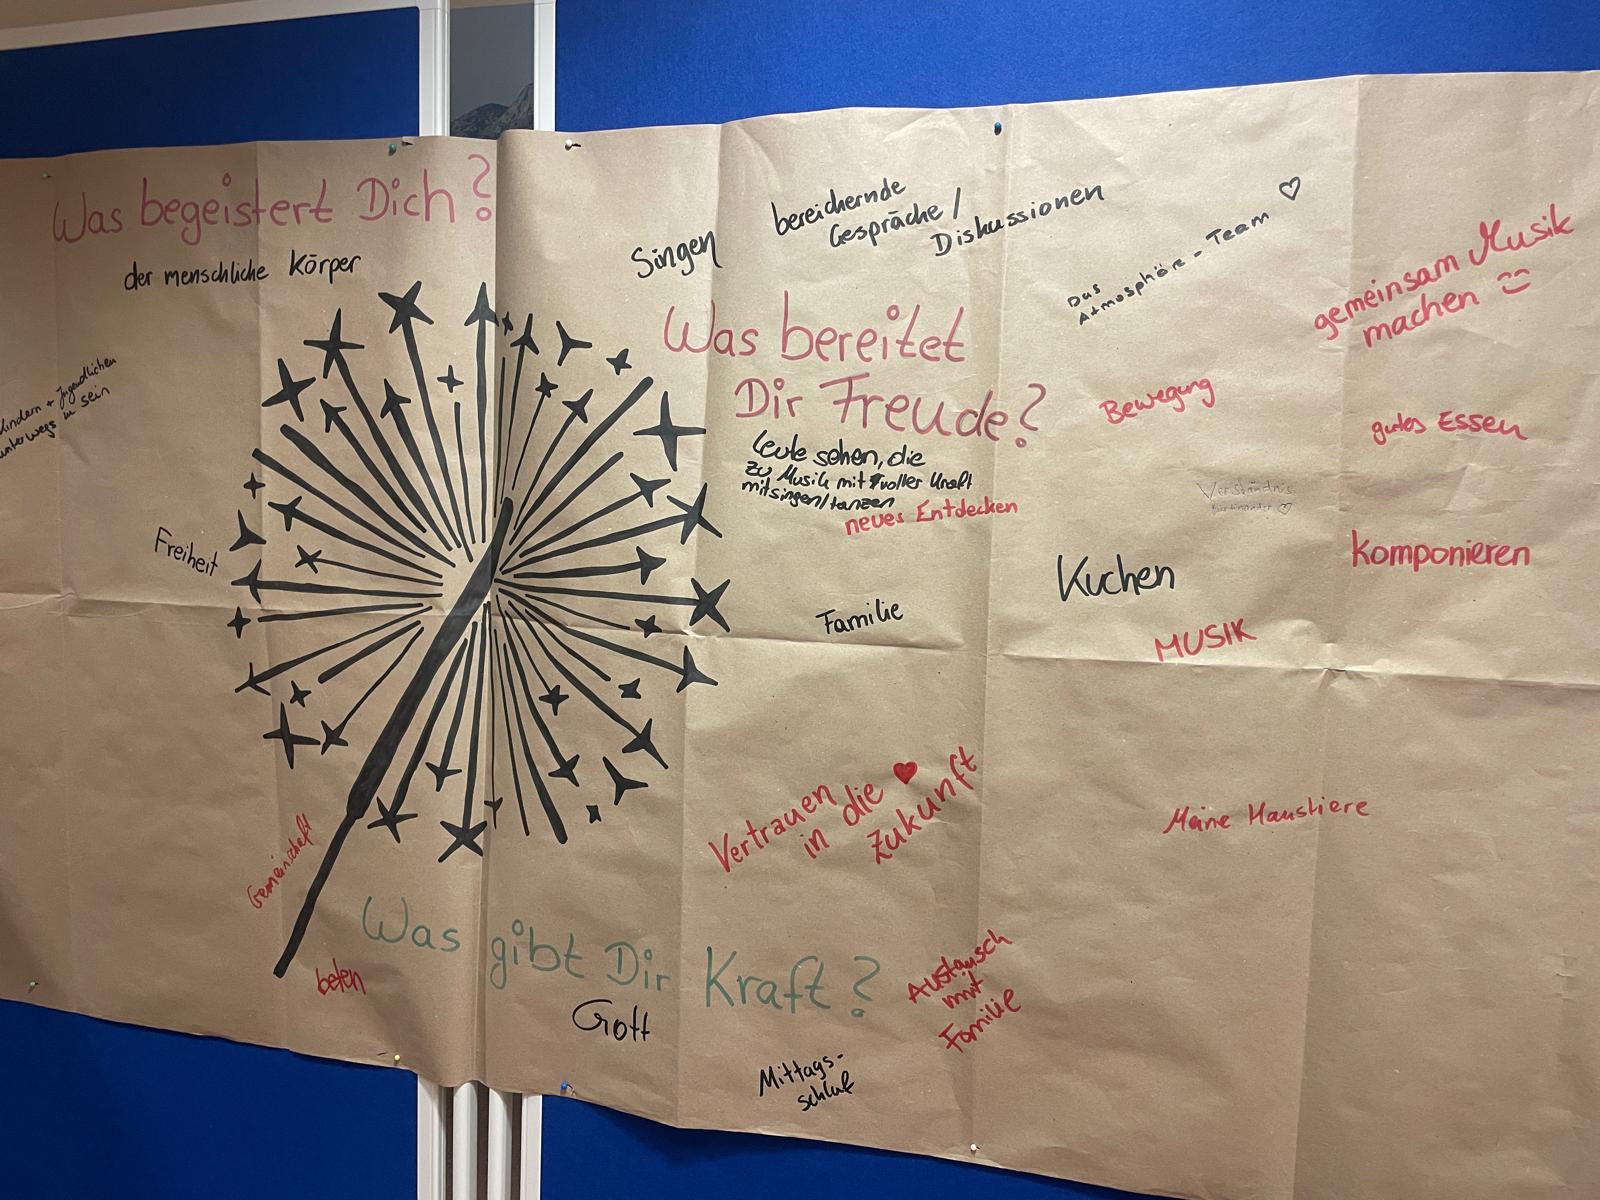 Was begeistert Dich?
der menschliche Körper
Kindern + Jugendlichen
unterwegs zu sein
Freiheit
Singen
bereichernde
Gespräche/
Diskussionen
Das
Atmosphäre-Team ♡
gemeinsam Musik
machen
Was bereitet
Dir Freude?
Leute sehen, die
zu Musik mit voller Kraft
mitsingen/tanzen
neues Entdecken
Bewegung
gutes Essen
Verständnis
füreinander ♡
komponieren
Kuchen
Familie
MUSIK
Vertrauen
in die ♥
Zukunft
Meine Haustiere
Gemeinschaft
Was gibt Dir Kraft?
beten
Gott
Austausch
mit
Familie
Mittags-
schlaf